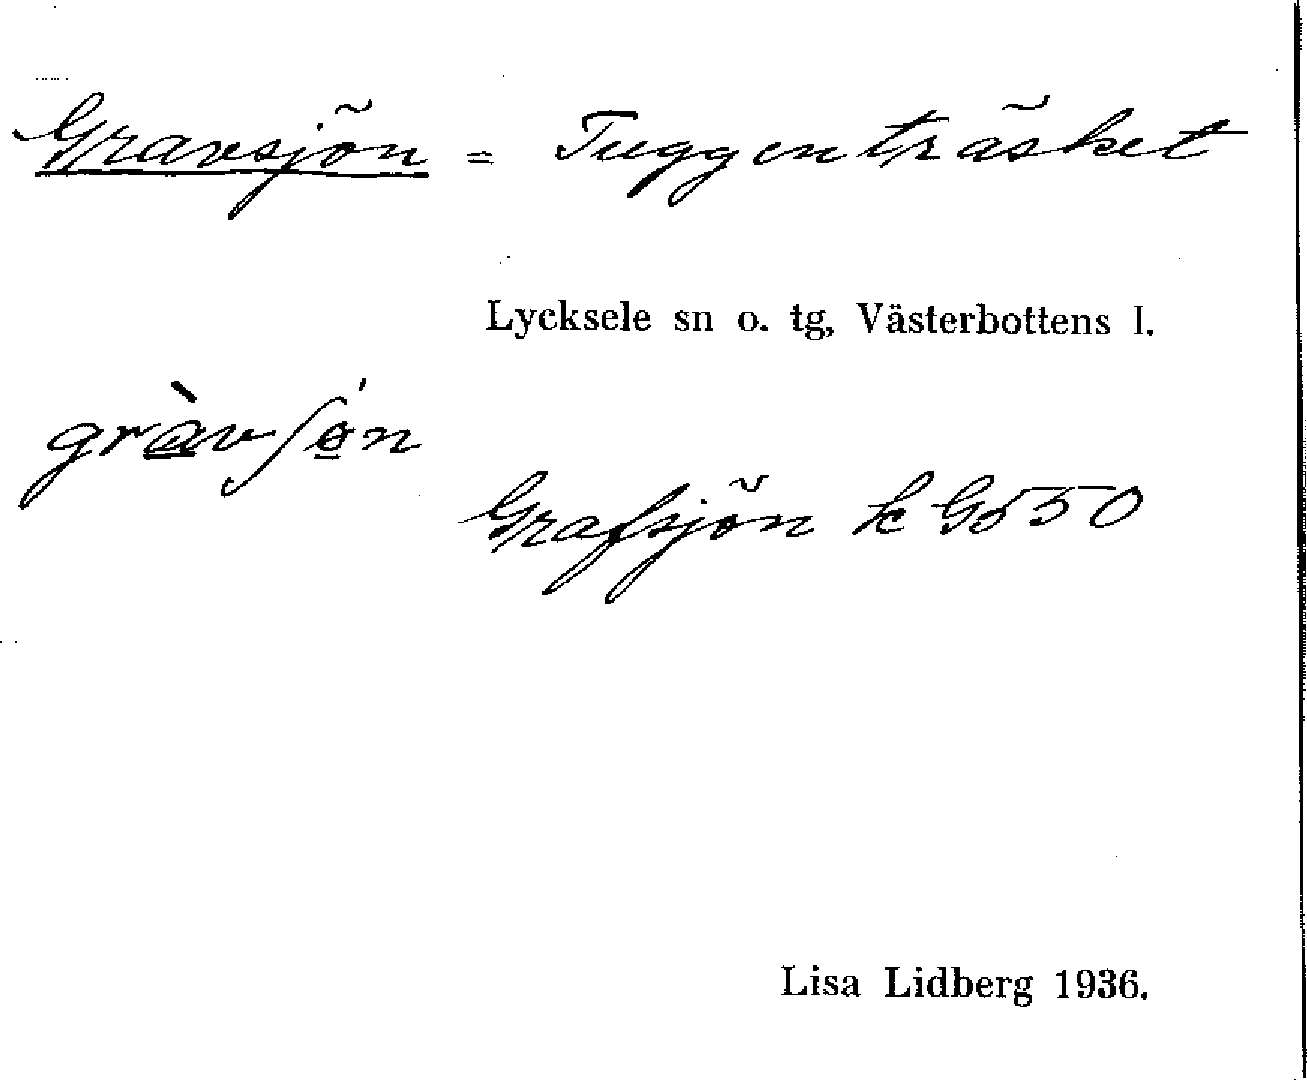 Gravsjön = Tuggenträsket
Lycksele sn o. tg, Västerbottens l.
gràvʃǿn
Grafsjön k G550
Lisa Lidberg 1936.